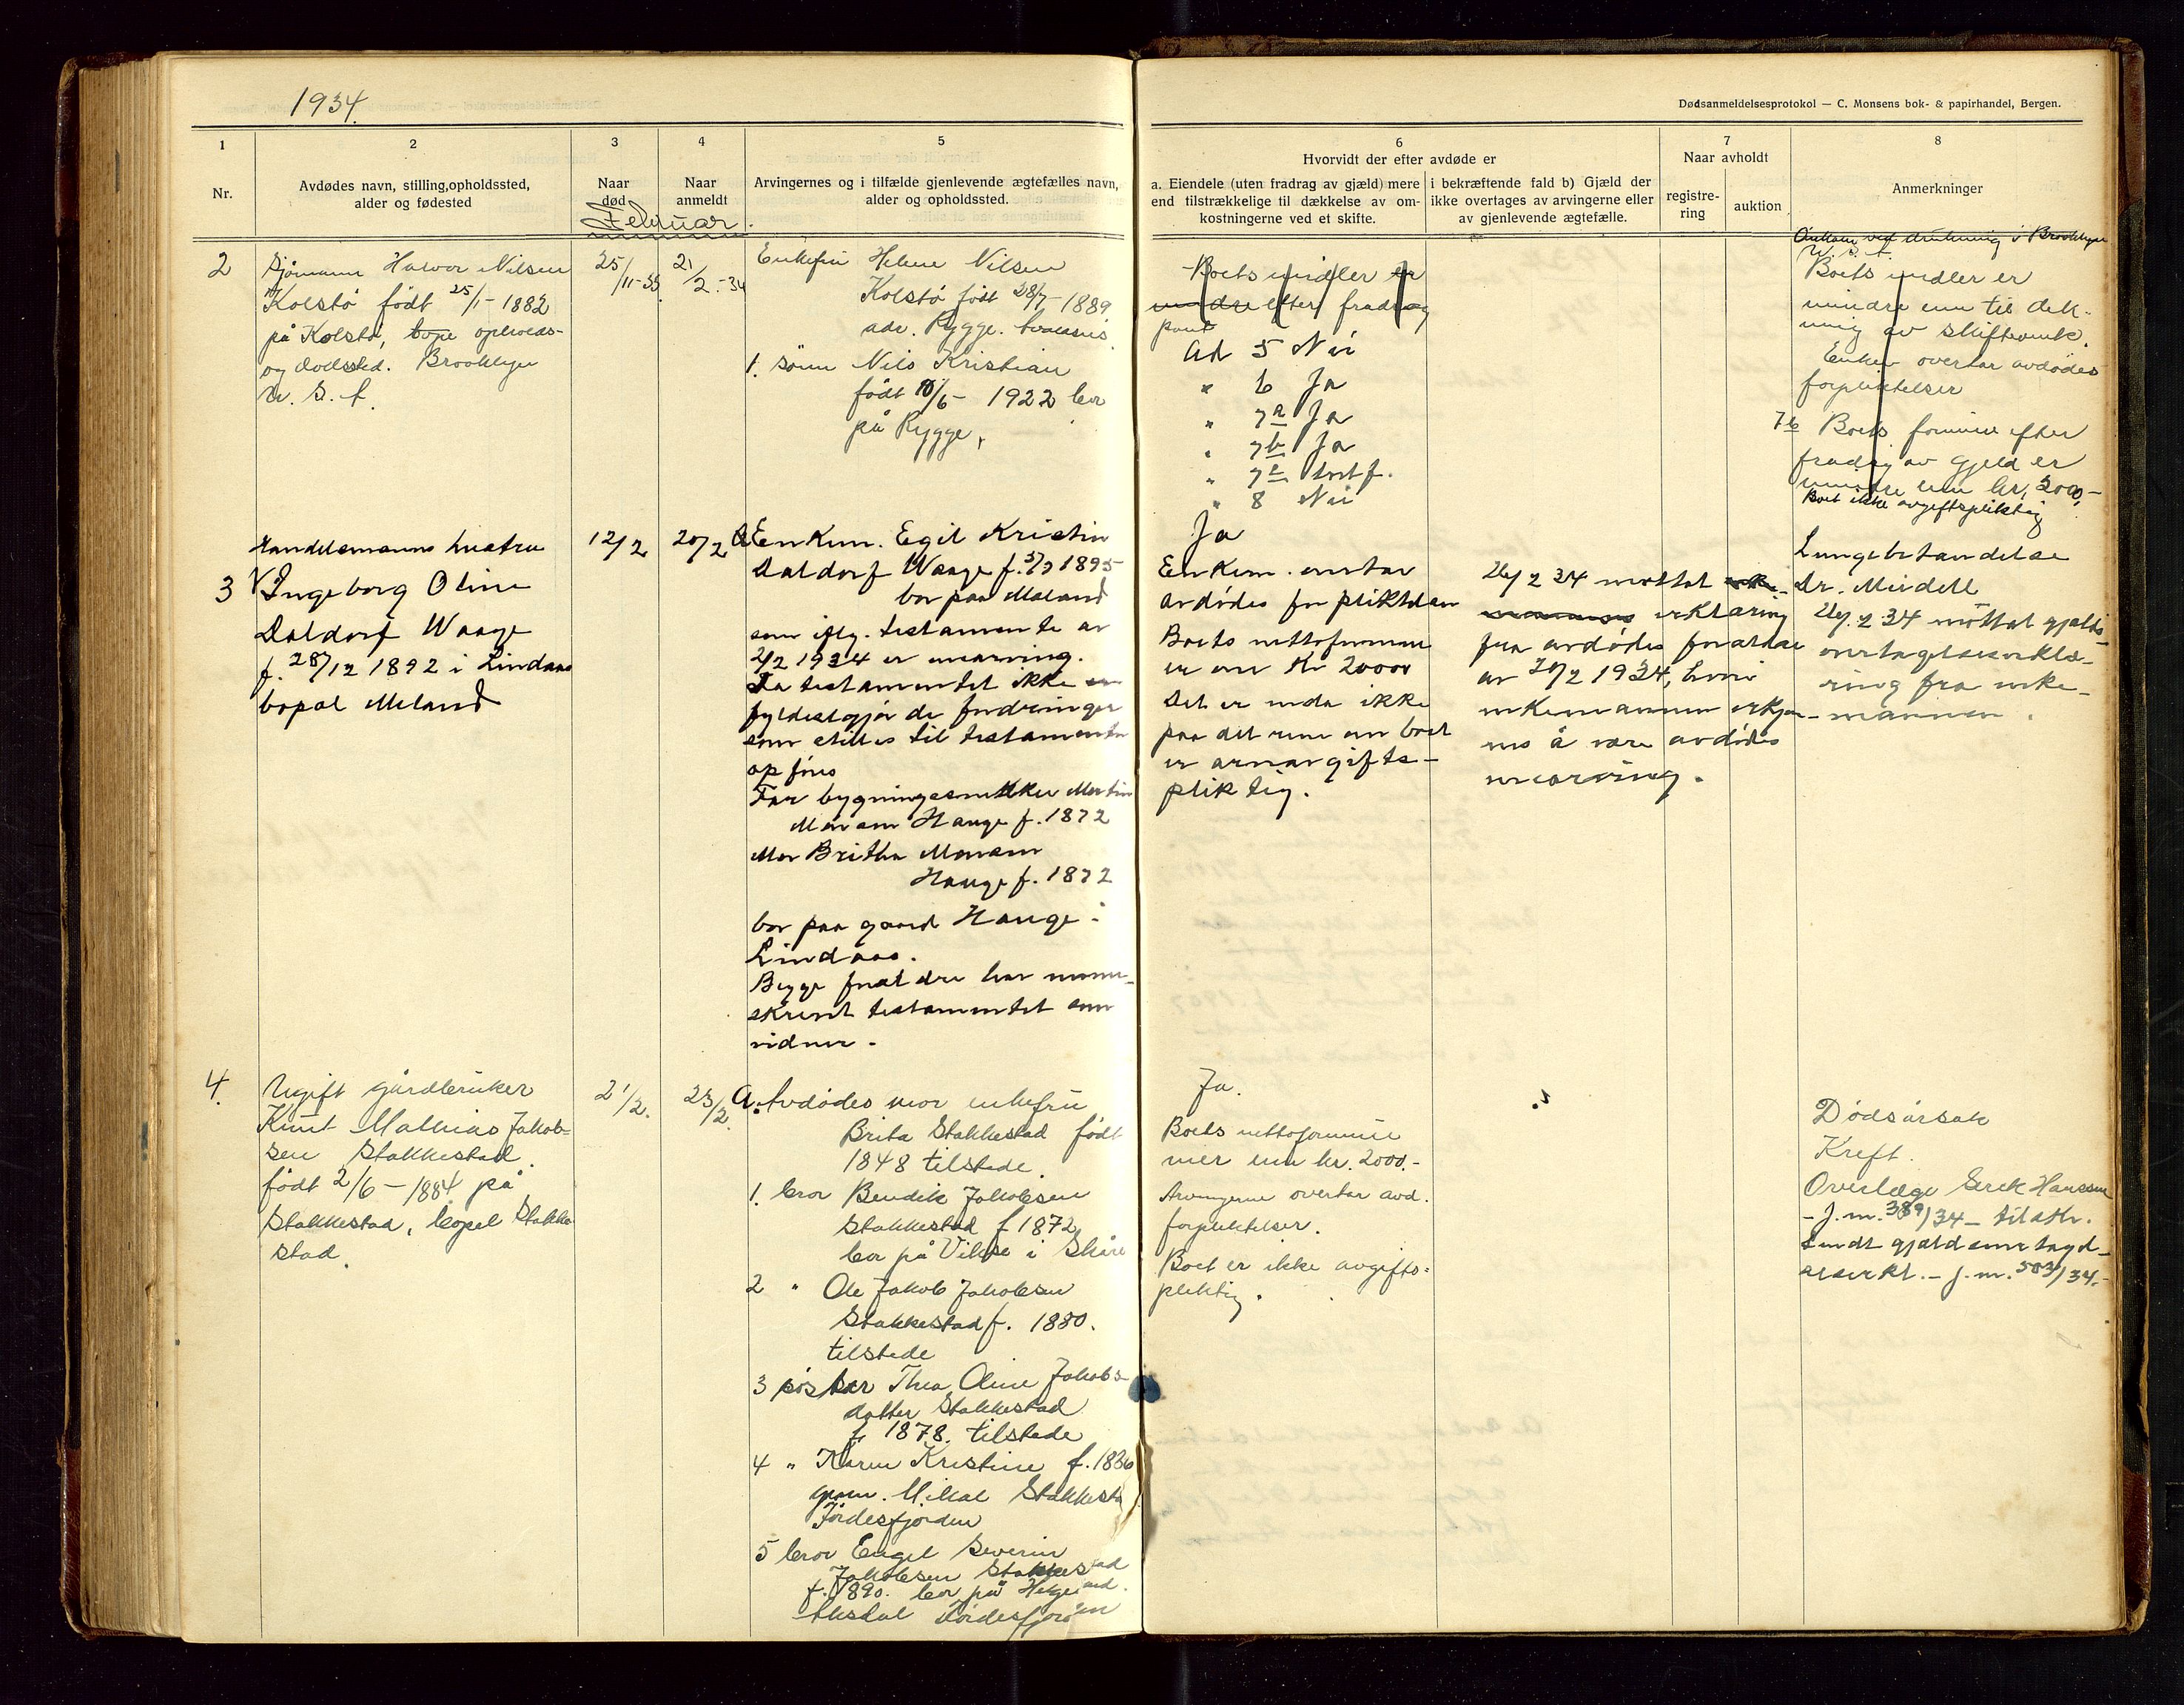 1934.
Dødsanmeldelsesprotokol — C. Monsens bok- & papirhandel, Bergen.
1
Nr.
2
Avdødes navn, stilling,opholdssted,
alder og fødested
3
Naar
død
4
Naar
anmeldt
5
Arvingernes og i tilfælde gjenlevende ægtefælles navn,
alder og opholdssted.
6
Hvorvidt der efter avdøde er
a. Eiendele (uten fradrag av gjæld) mere
end tilstrækkelige til dækkelse av om-
kostningerne ved et skifte.
i bekræftende fald b) Gjæld der
ikke overtages av arvingerne eller
av gjenlevende ægtefælle.
7
Naar avholdt
registre-
ring
auktion
8
Anmerkninger
Februar.
2
Sjømann Halvor Nilsen
Kolstø født 25/1-1882
på Kolstø, opholds-
og dødssted. Brooklyn
U. S. A.
25/11-33
21/2.-34
Enkefru Helene Nilsen
Kolstø født 28/7-1889
adr. Rygge.
1. sønn Nils Kristian
født 10/6- 1922 bor
på Rygge,
Boets midler er
mindre efter fradrag
Ad 5 Nei
" 6 Ja
" 7a Ja
" 7b Ja
" 7c bortf.
" 8 Nei
Omkom ved drukning i Brooklyn
U. S. A.
Boets midler er
mindre enn til dek-
ning av skifteomk.
Enken overtar avdødes
forpliktelser
7b Boets formue efter
fradrag av gjeld er
mindre enn kr. 2000,-
Boet ikke avgiftspliktig
3
Handelsmanns hustru
Ingeborg Oline
Daldorf Waage
f. 28/12 1892 i Lindaas
bopæl Meland
12/2
20/2
a Enkem. Egil Kristin
Daldorf Waage f. 1895
bor paa Meland
som iflg. testamente av
2/2 1934 er enearving.
Da testamentet ikke
fyldestgjør de fordringer
som stilles til testamenter
opføres
Far bygningssnekker Martin
Monsen Hauge f. 1872
Mor Britha Monsen
Hauge f. 1872
bor paa gaard Hauge i
Lindaas.
Begge foreldre har under-
skrevet testamentet som
vidner.
Ja
Enkem. overtar
avdødes forpliktelser
Boets nettoformue
er over Kr 2000
Det er enda ikke
paa det rene om boet
er arveavgifts-
pliktig.
26/2 34 mottat
erklæring
fra avdødes foreldre
av 20/2 1934, hvori
enkemannen erkjen-
nes å være avdødes
enearving.
Lungebetendelse
Dr. Mindell
26/2 34 mottat gjælds-
overtagelseserklæ-
ring fra enke-
mannen.
4.
Ugift gårdbruker
Knut Mathias Jakob-
sen Stakkestad.
født 2/6-1884 på
Stakkestad, bopel Stakke-
stad.
21/2.
23/2.
a. Avdødes mor enkefru
Brita Stakkestad født
1848 tilstede.
1. bror Bendik Jakobsen
Stakkestad f 1872
bor på Vikse i Skåre
2 " Ole Jakob Jakobsen
Stakkestad f. 1880.
tilstede
3 søster Thea Oline Jakobs-
datter Stakkestad
f. 1878. tilstede
4 " Karen Kristine f. 1886
gem. Mikal Stakkesta
Førdesfjorden
5 bror Engel Severin
Jakobsen Stakkestad
f. 1890. bor på Helgeland.
Aksdal Førdesfjorden
Ja.
Boets nettoformue
mer enn kr. 2000.-
Arvingerne overtar avd.
forpliktelser.
Boet er ikke avgifts-
pliktig.
Dødsårsak
Kreft.
Overlæge Gerek Hanssen
- J.nr. 389/34 - til attr.
Sendt gjeldsovertagel-
seserkl. - J.nr. 503/34.-